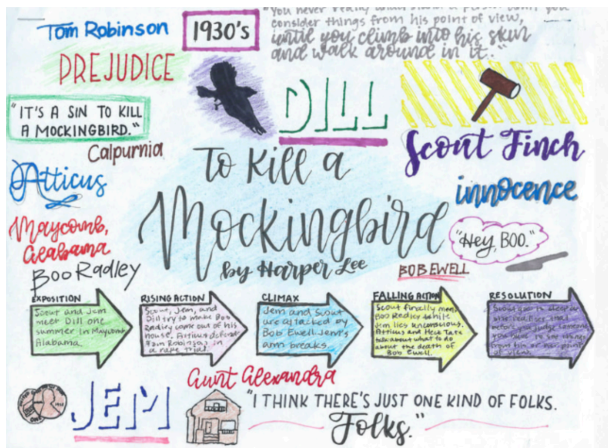 Tom Robinson
1930's
"You never really
consider things from his point of view,
until you climb into his skin
and walk around in it."
PREJUDICE
DILL
"IT'S A SIN TO KILL
A MOCKINGBIRD."
Calpurnia
Scout Finch
Atticus
To Kill a
Mockingbird
by Harper Lee
innocence
Maycomb,
Alabama
"Hey, Boo."
Boo Radley
BOB EWELL
EXPOSITION
Scout and Jem
meet Dill one
summer in Maycomb
Alabama.
RISING ACTION
Scout, Jem, and
Dill try to make Boo
Radley come out of his
house. Atticus defends
Tom Robinson in
a rape trial.
CLIMAX
Jem and Scout
are attacked by
Bob Ewell. Jem's
arm breaks.
FALLING ACTION
Scout finally meets
Boo Radley while
Jem lies unconscious.
Atticus and Heck Tate
talk about what to do
about the death of
Bob Ewell.
RESOLUTION
Aunt Alexandra
JEM
"I THINK THERE'S JUST ONE KIND OF FOLKS.
Folks."